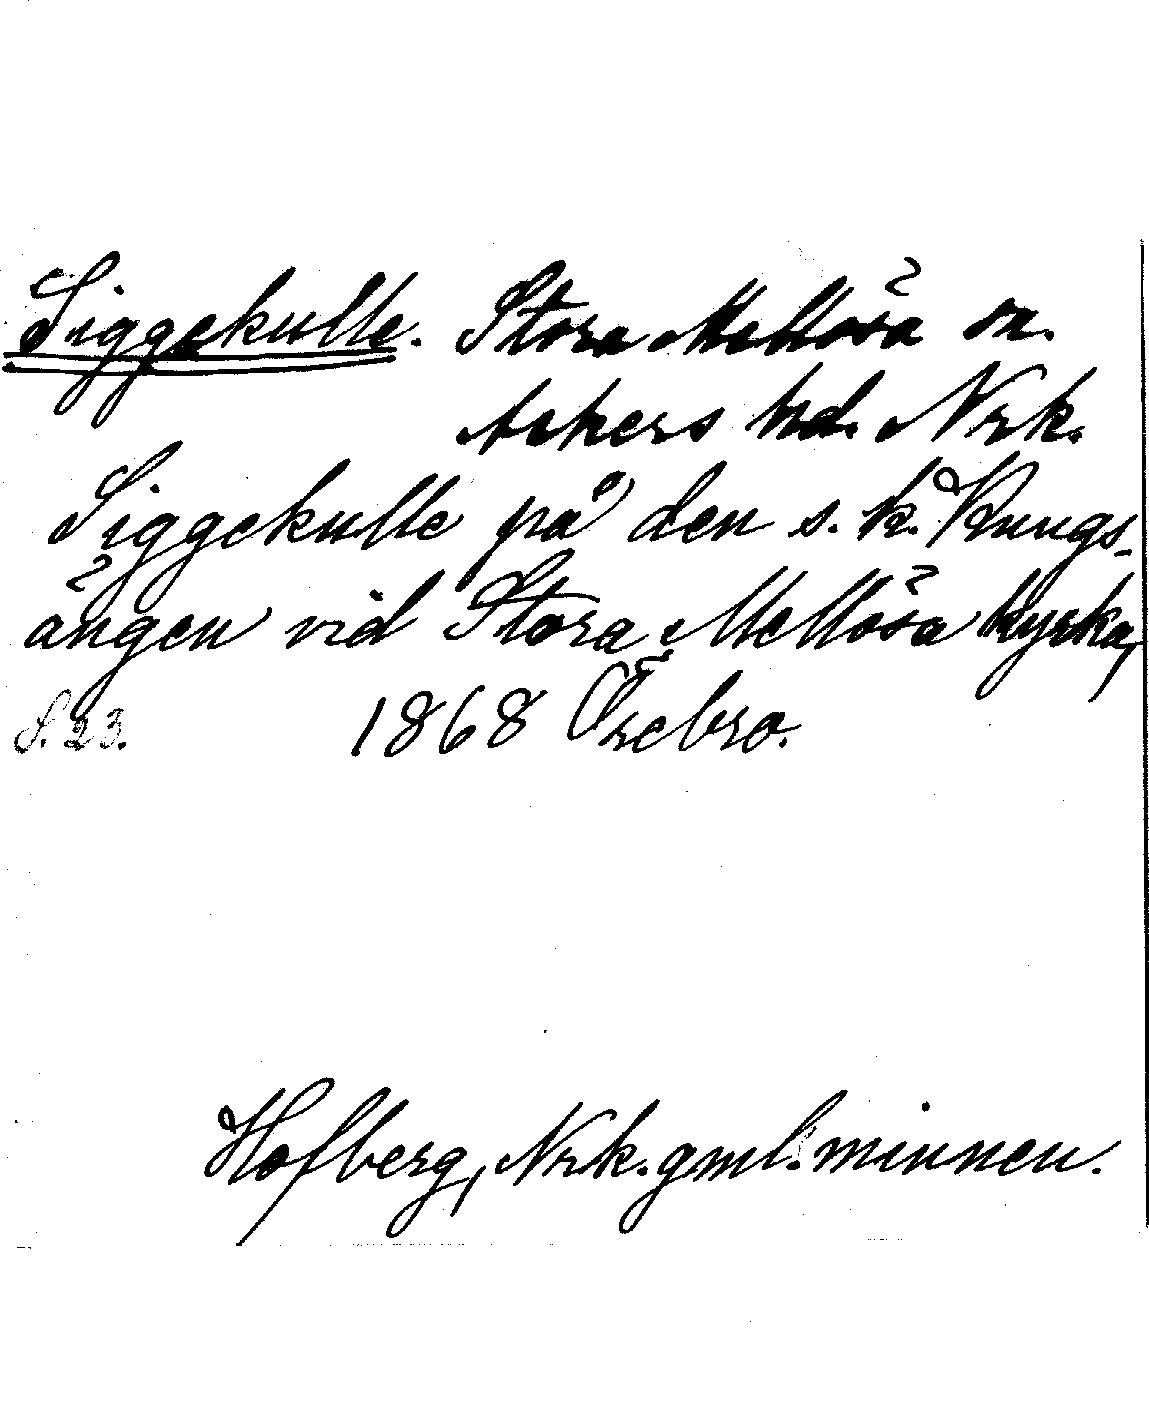 Siggekulle. Stora Mellösa sn.
Askers hd. Nrk.
Siggekulle på den s. k. Kungs-
ängen vid Stora Mellösa kyrka,
S. 23. 1868 Örebro.
Hofberg, Nrk. gml. minnen.